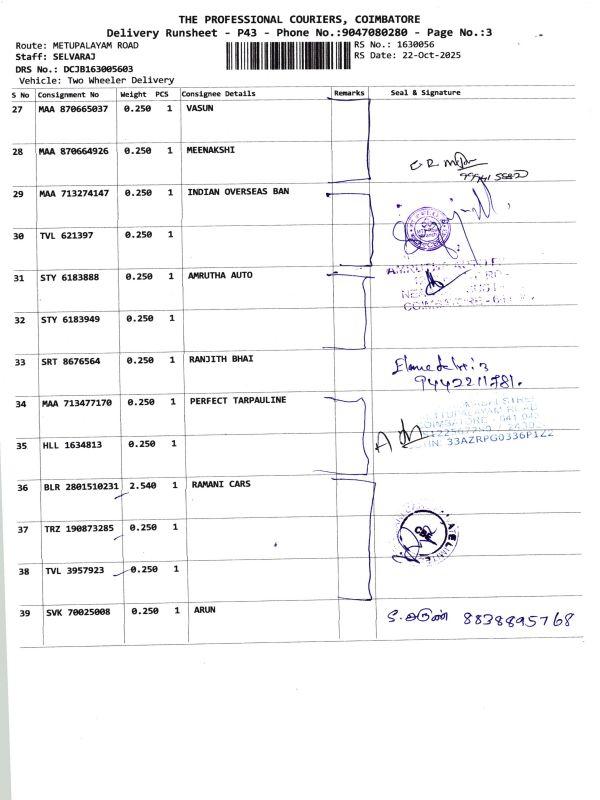 THE PROFESSIONAL COURIERS, COIMBATORE
Delivery Runsheet - P43 - Phone No.:9047080280 - Page No.:3
Route: METUPALAYAM ROAD RS No.: 1630056
Staff: SELVARAJ RS Date: 22-Oct-2025
DRS No.: DCJB163005603
Vehicle: Two Wheeler Delivery
S No Consignment No Weight PCS Consignee Details Remarks Seal & Signature
27 MAA 870665037 0.250 1 VASUN
28 MAA 870664926 0.250 1 MEENAKSHI
29 MAA 713274147 0.250 1 INDIAN OVERSEAS BAN
30 TVL 621397 0.250 1
31 STY 6183888 0.250 1 AMRUTHA AUTO
COIMBATORE - 641
32 STY 6183949 0.250 1
33 SRT 8676564 0.250 1 RANJITH BHAI
9442211781.
34 MAA 713477170 0.250 1 PERFECT TARPAULINE
METTUPALAYAM ROAD
COIMBATORE - 641 043
35 HLL 1634813 0.250 1
33AZRPG0336P1Z2
36 BLR 2801510231 2.540 1 RAMANI CARS
37 TRZ 190873285 0.250 1
CBE
38 TVL 3957923 0.250 1
39 SVK 70025008 0.250 1 ARUN S. அருண் 8838895768